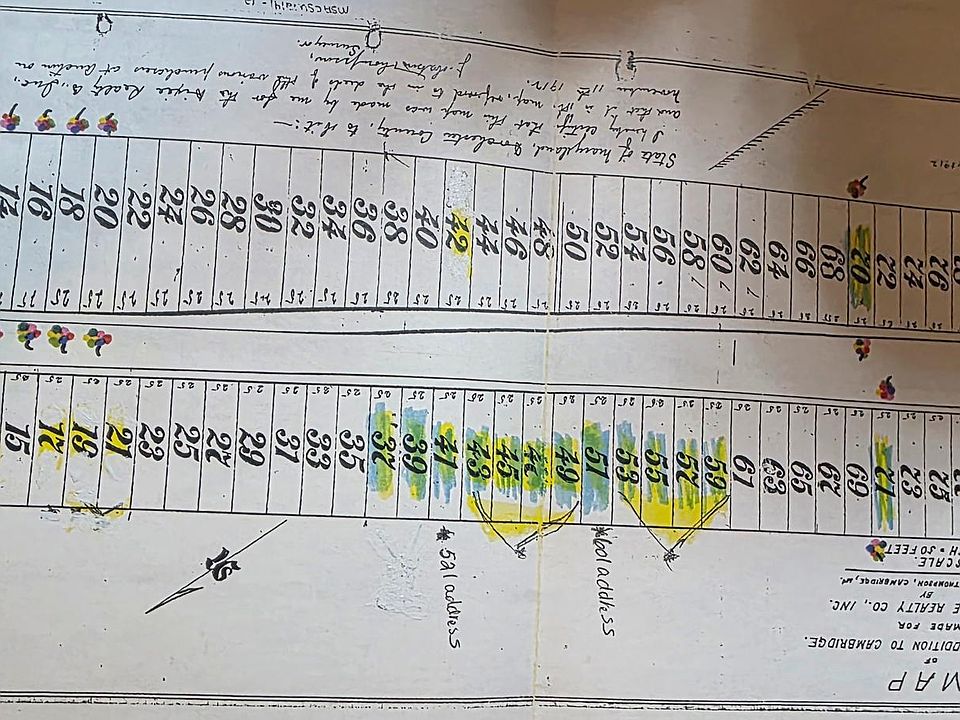 MAP
OF
ADDITION TO CAMBRIDGE.
MADE FOR
REALTY CO., INC.
BY
THOMPSON, CAMBRIDGE, MD.
SCALE.
INCH = 50 FEET
* 521 address
* 601 address
15 17 19 21 23 25 27 29 31 33 35 37 39 41 43 45 47 49 51 53 55 57 59 61 63 65 67 69 71 73 75
14 16 18 20 22 24 26 28 30 32 34 36 38 40 42 44 46 48 50 52 54 56 58 60 62 64 66 68 70 72 74 76
State of Maryland, Dorchester County, to Wit:—
I hereby certify that this map was made by me for the Dixie Realty Co., Inc.,
and that it is the map referred to in the deeds of the various purchasers at Auction on
November 11th 1912.
J. Thompson,
Surveyor.
1912